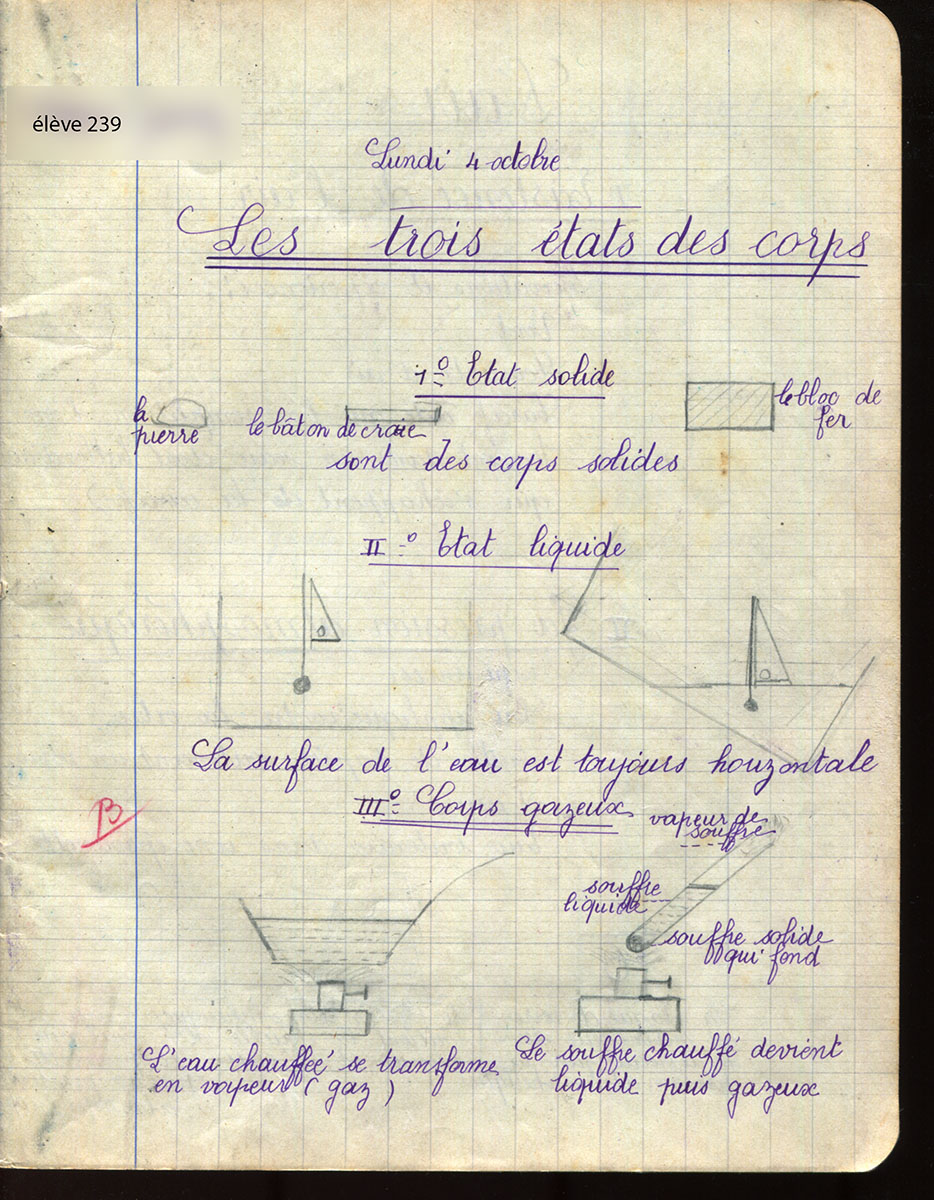 élève 239
Lundi 4 octobre
Les trois états des corps
1º Etat solide
la pierre
le bâton de craie
le bloc de fer
sont des corps solides
II-º Etat liquide
La surface de l'eau est toujours horizontale
IIIº- Corps gazeux
B
vapeur de
souffre
souffre
liquide
souffre solide
qui fond
L'eau chauffée se transforme
en vapeur (gaz)
Le souffre chauffé devient
liquide puis gazeux